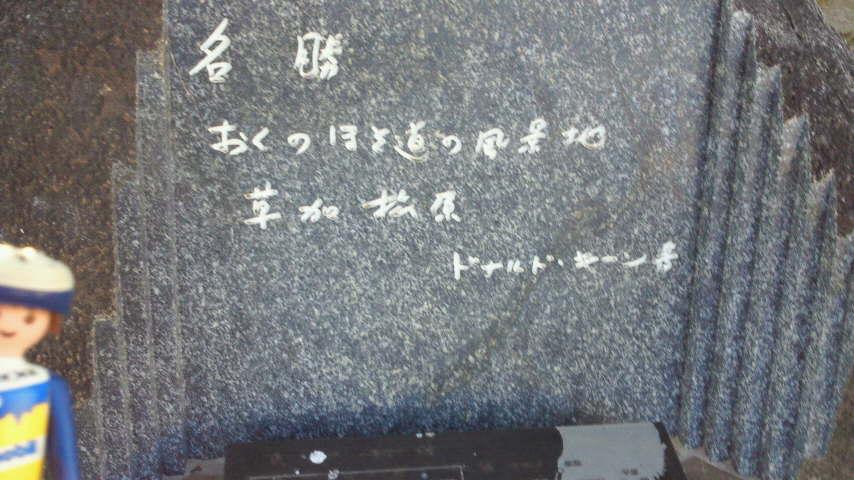 名勝
おくのほそ道の風景地
草加松原
ドナルド・キーン書